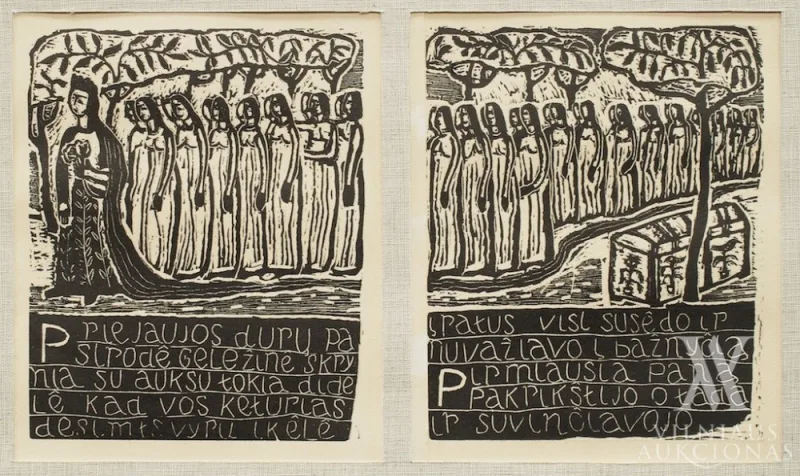 PRIE JAUJOS DURŲ PA
SIRODĖ GELEŽINE SKRY
NIA SU AUKSU TOKIA DIDE
LĖ KAD VOS KETURIAS
DEŠIMTS VYRŲ ĮKĖLĖ
ĮRATUS VISI SUSĖDO IR
NUVAŽIAVO Į BAŽNYČIĄ
PIRMIAUSIA
PAKRIKŠTIJO O TADA
IR
VILNIAUS
AUKCIONAS